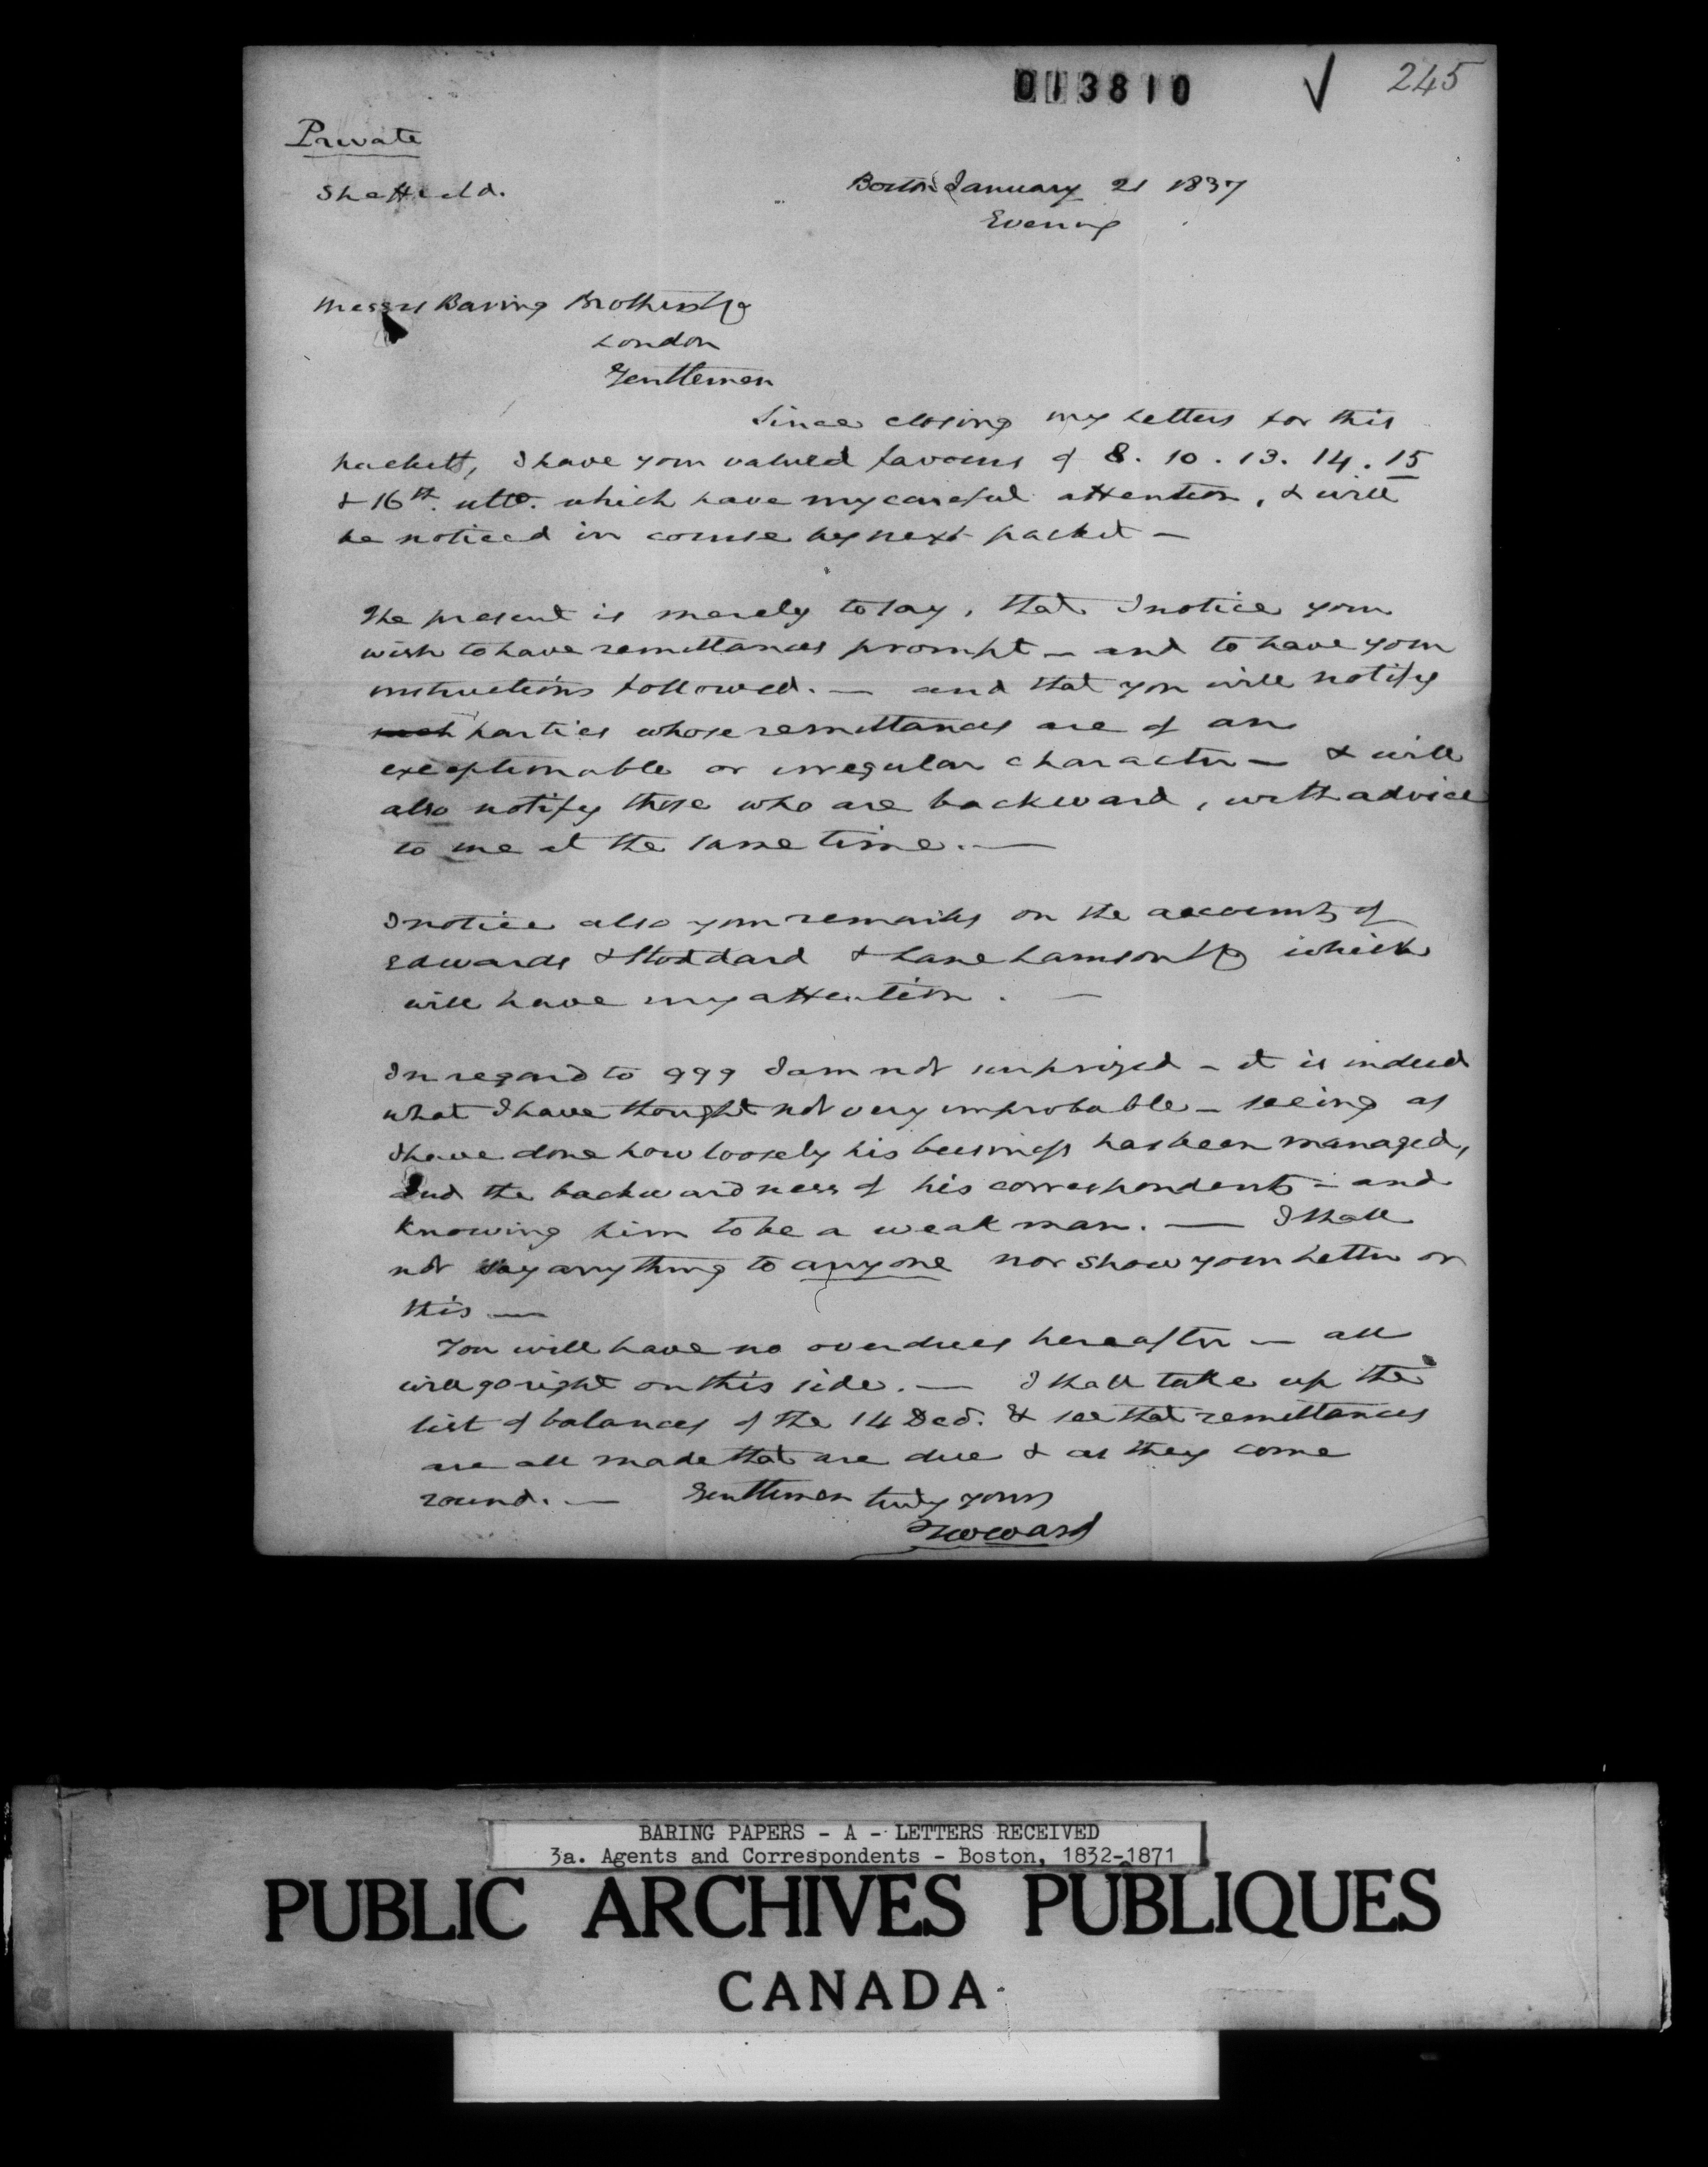 013810 √ 245
Private
Sheffield.
Boston January 21 1837
Evening
Messrs Baring Brothers & Co
London
Gentlemen
Since closing my letters for this
packett, I have your valued favours of 8. 10. 13. 14. 15
& 16th. ulto. which have my careful attention, & will
be noticed in course by next packet —
The present is merely to say, that I notice your
wish to have remittances prompt — and to have your
instructions followed. — and that you will notify
such parties whose remittances are of an
exceptionable or irregular character — & will
also notify those who are backward, with advice
to me at the same time. —
I notice also your remarks on the accounts of
Edwards & Stoddard & Lane Lamson & Co which
will have my attention. —
In regard to 999 I am not surprized — it is indeed
what I have thought not very improbable — seeing as
I have done how loosely his business has been managed,
and the backwardness of his correspondents — and
knowing him to be a weak man. — I shall
not say any thing to anyone nor show your letter or
this —
You will have no overdues hereafter — all
will go right on this side. — I shall take up the
list of balances of the 14 Decr. & see that remittances
are all made that are due & as they come
round. — Gentlemen truly yours
TWWard
BARING PAPERS - A - LETTERS RECEIVED
3a. Agents and Correspondents - Boston, 1832-1871
PUBLIC ARCHIVES PUBLIQUES
CANADA